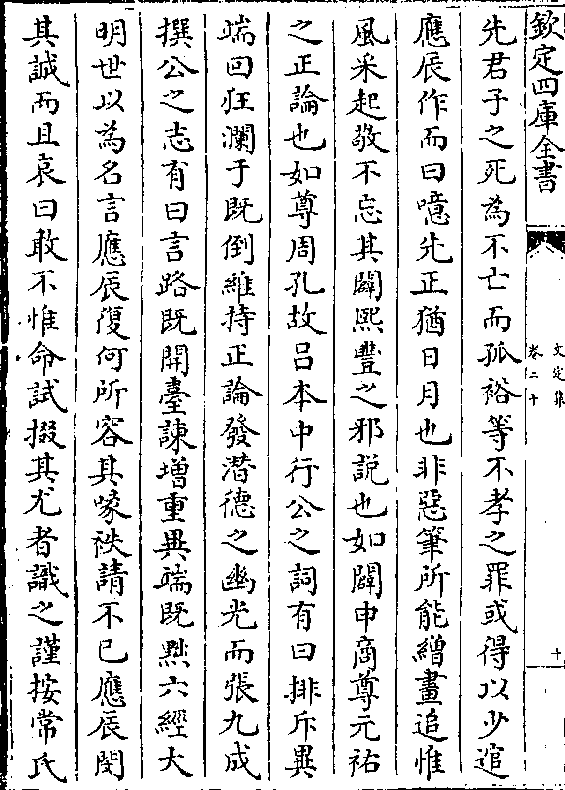 欽定四庫全書
文定集
卷二十
十
先君子之死為不亡而孤裕等不孝之罪或得以少逭
應辰作而曰噫先正猶日月也非惡筆所能繪畫追惟
風采起敬不忘其闢熙豐之邪説也如闢申商尊元祐
之正論也如尊周孔故吕本中行公之詞有曰排斥異
端回狂瀾于既倒維持正論發潛德之幽光而張九成
撰公之志有曰言路既開臺諫增重異端既㸃六經大
明世以為名言應辰復何所容其喙秩請不已應辰閔
其誠而且哀曰敢不惟命試掇其尤者識之謹按常氏